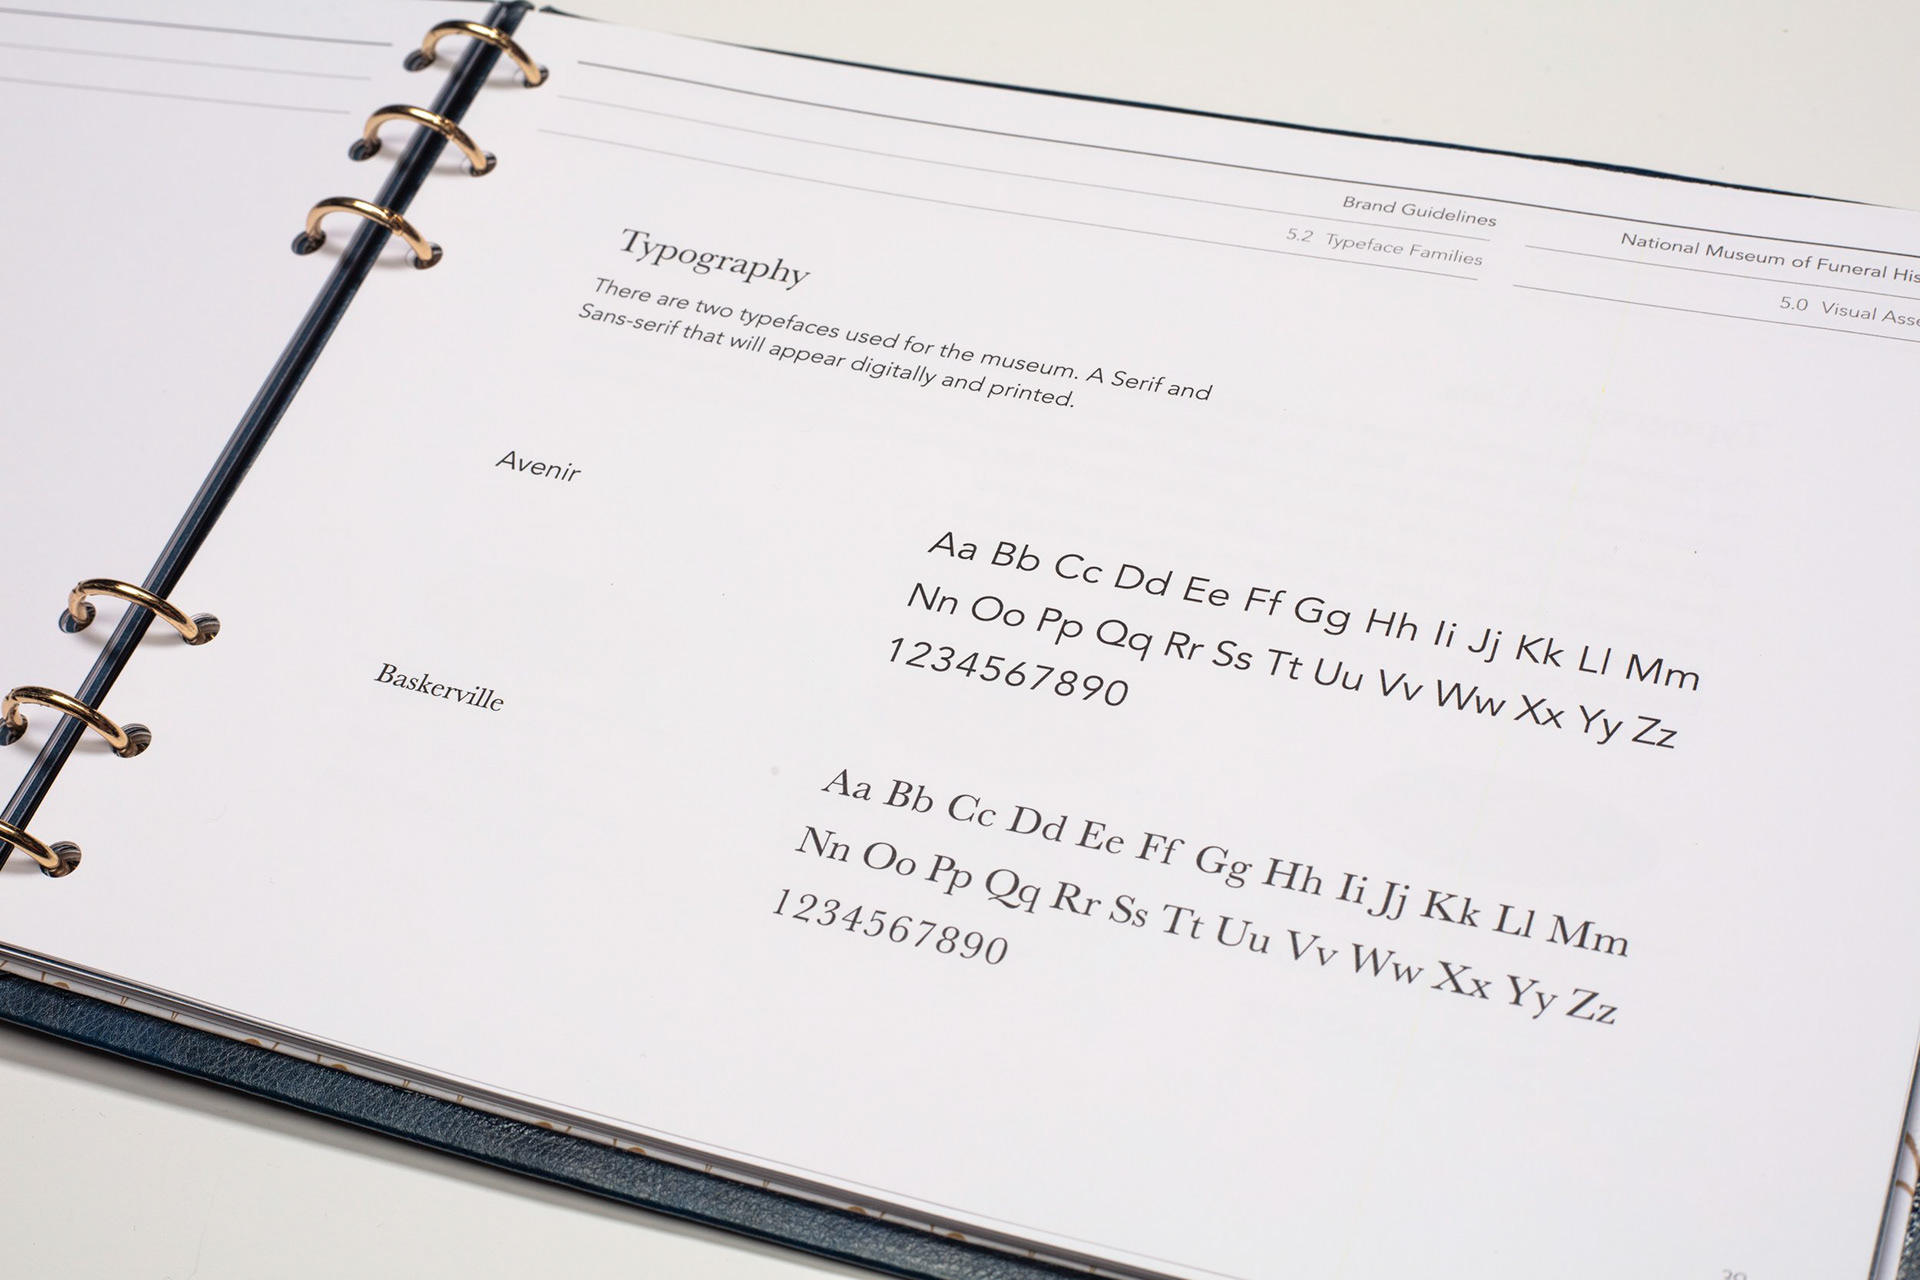 Brand Guidelines
National Museum of Funeral His
5.2 Typeface Families
5.0 Visual Asse
Typography
There are two typefaces used for the museum. A Serif and
Sans-serif that will appear digitally and printed.
Avenir
Aa Bb Cc Dd Ee Ff Gg Hh Ii Jj Kk Ll Mm
Nn Oo Pp Qq Rr Ss Tt Uu Vv Ww Xx Yy Zz
1234567890
Baskerville
Aa Bb Cc Dd Ee Ff Gg Hh Ii Jj Kk Ll Mm
Nn Oo Pp Qq Rr Ss Tt Uu Vv Ww Xx Yy Zz
1234567890